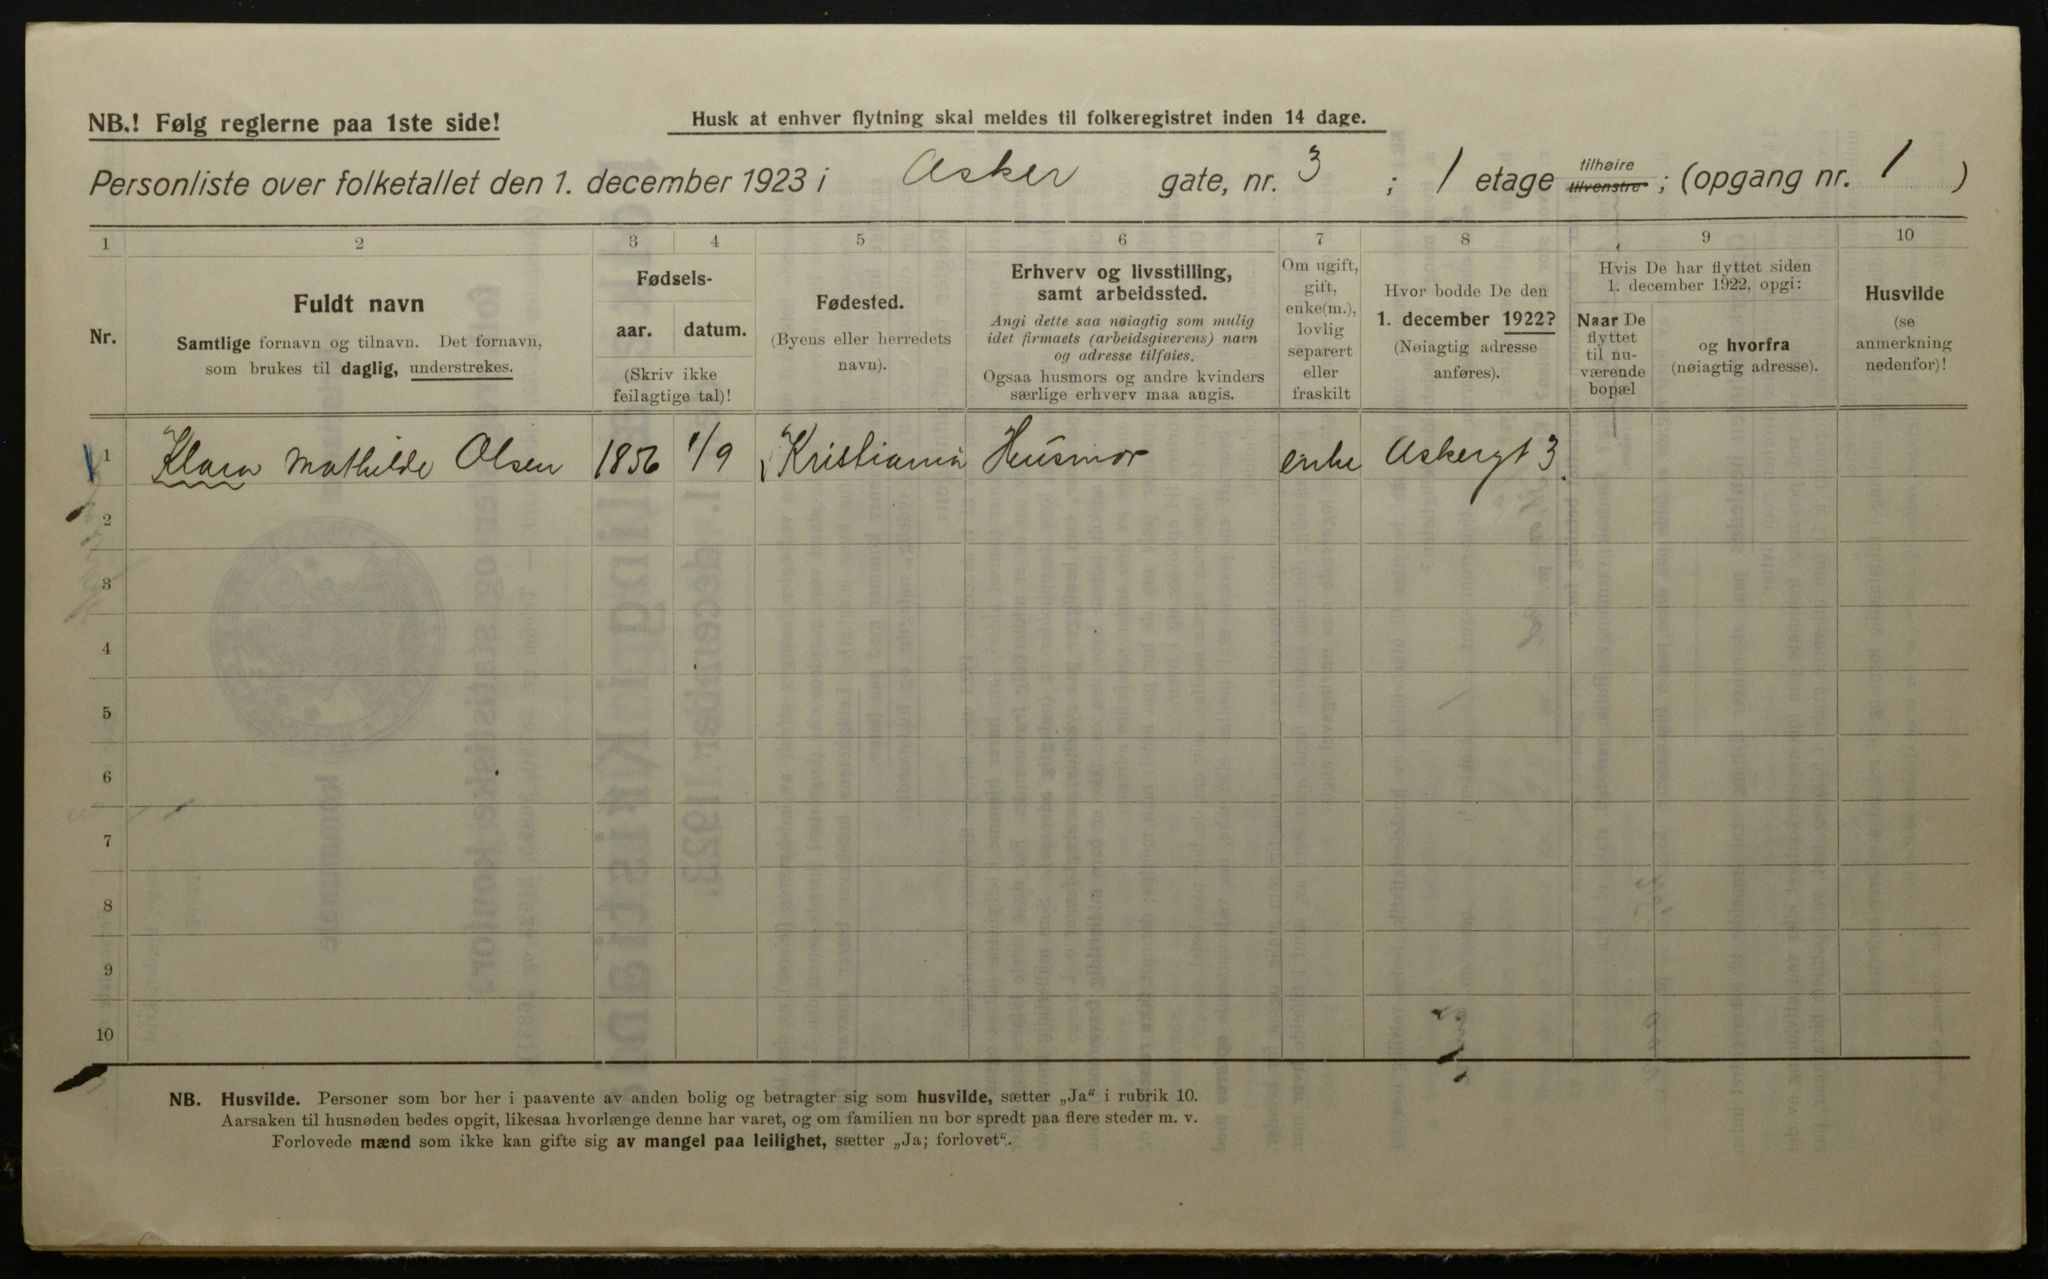 NB.! Følg reglerne paa 1ste side!
Husk at enhver flytning skal meldes til folkeregistret inden 14 dage.
Personliste over folketallet den 1. december 1923 i Asker gate, nr. 3 ; 1 etage tilhøire tilvenstre ; (opgang nr. 1 )
1 2 3 4 5 6 7 8 9 10
Nr.
Fuldt navn
Samtlige fornavn og tilnavn. Det fornavn,
som brukes til daglig, understrekes.
Fødsels-
aar. datum.
(Skriv ikke
feilagtige tal)!
Fødested.
(Byens eller herredets
navn).
Erhverv og livsstilling,
samt arbeidssted.
Angi dette saa nøiagtig som mulig
idet firmaets (arbeidsgiverens) navn
og adresse tilføies.
Ogsaa husmors og andre kvinders
særlige erhverv maa angis.
Om ugift,
gift,
enke(m.),
lovlig
separert
eller
fraskilt
Hvor bodde De den
1. december 1922?
(Nøiagtig adresse
anføres).
Hvis De har flyttet siden
1. december 1922, opgi:
Naar De
flyttet
til nu-
værende
bopæl
og hvorfra
(nøiagtig adresse).
Husvilde
(se
anmerkning
nedenfor)!
1 Klara Mathilde Olsen 1856 1/9 Kristiania Husmor enke Askergt 3.
2
3
4
5
6
7
8
9
10
NB. Husvilde. Personer som bor her i paavente av anden bolig og betragter sig som husvilde, sætter „Ja" i rubrik 10.
Aarsaken til husnøden bedes opgit, likesaa hvorlænge denne har varet, og om familien nu bor spredt paa flere steder m. v.
Forlovede mænd som ikke kan gifte sig av mangel paa leilighet, sætter „Ja; forlovet".